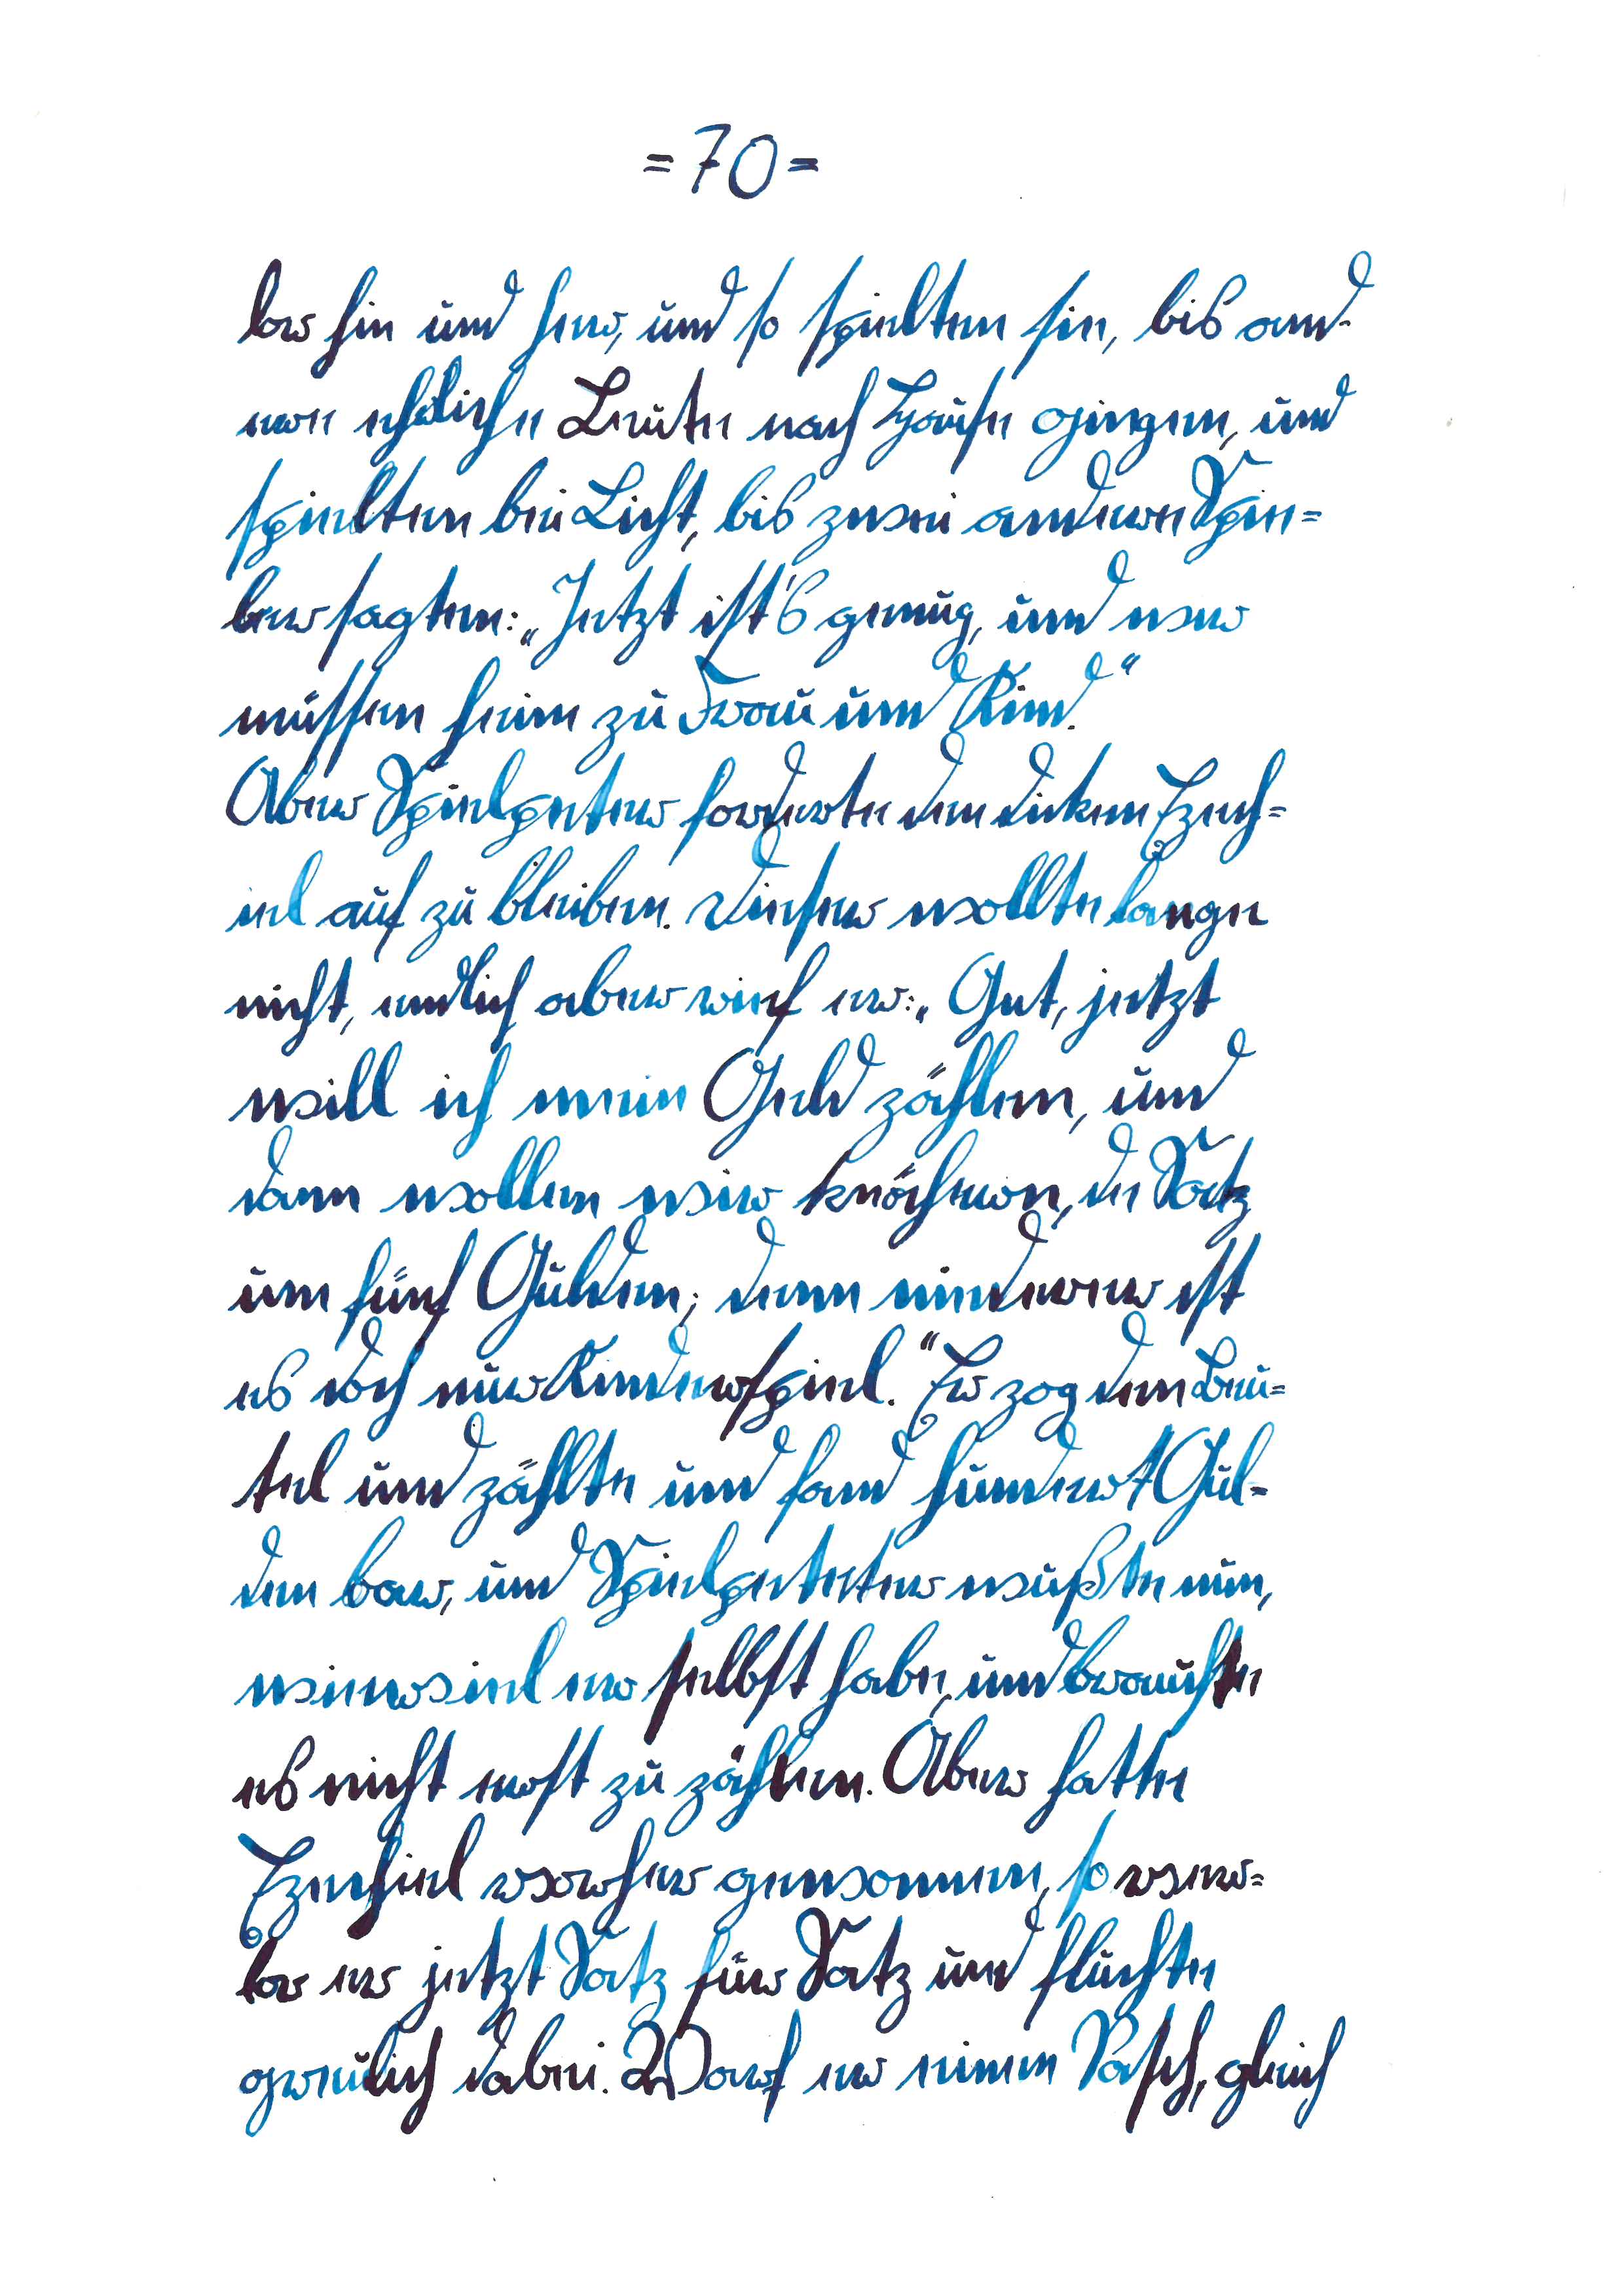 =70=
lor hin und her, und so spielten sie, bis and-
ere ehrliche Leute nach Hause gingen, und
spielten bei Licht, bis zwei andere Spie=
ler sagten: „Jetzt ist's genug, und wir
müssen heim zu Frau und Kind.“
Aber Spielpeter forderte den dicken Ezech=
iel auf zu bleiben. Dieser wollte lange
nicht, endlich aber rief er: „Gut, jetzt
will ich mein Geld zählen, und
dann wollen wir knöcheln, de Satz
um fünf Gulden; denn niederer ist
es doch nur Kinderspiel.“ Er zog den Beu=
tel und zählte und fand hundert Gul=
den bar, und Spielpeter wußte nun,
wieviel er selbst habe, und brauchte
es nicht erst zu zählen. Aber hatte
Ezechiel vorher gewonnen, so ver=
lor er jetzt Satz für Satz und fluchte
greulich dabei. Warf er einen Pasch, gleich